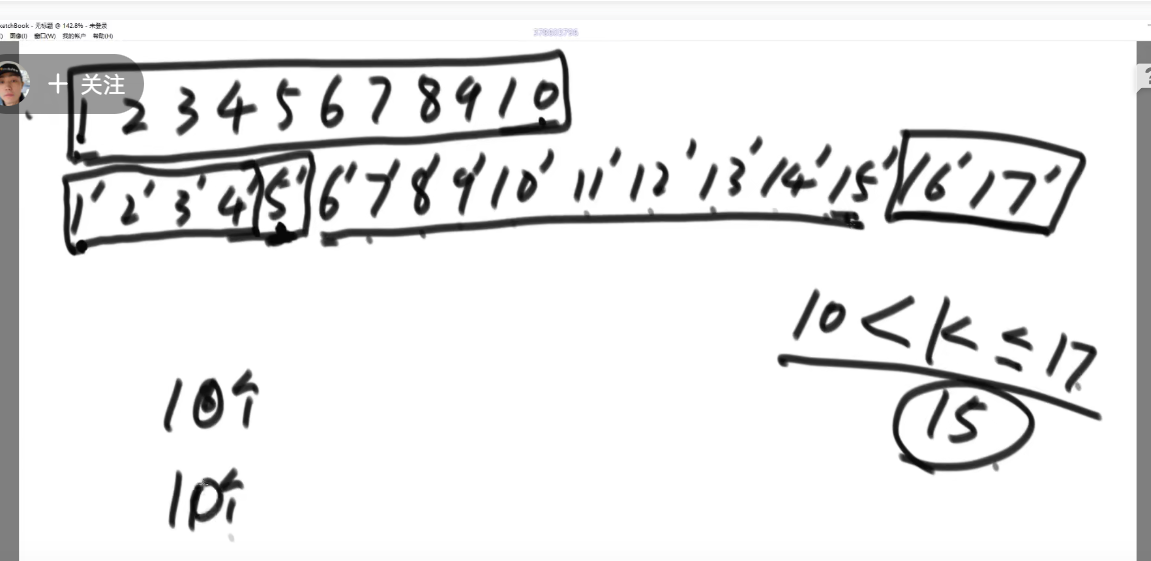 SketchBook - 无标题 @ 142.8% - 未登录
图像(I) 窗口(W) 我的帐户 帮助(H)
+ 关注
1 2 3 4 5 6 7 8 9 10
1' 2' 3' 4' 5' 6' 7' 8' 9' 10' 11' 12' 13' 14' 15' 16' 17'
10 < k ≤ 17
15
10个
10个
?